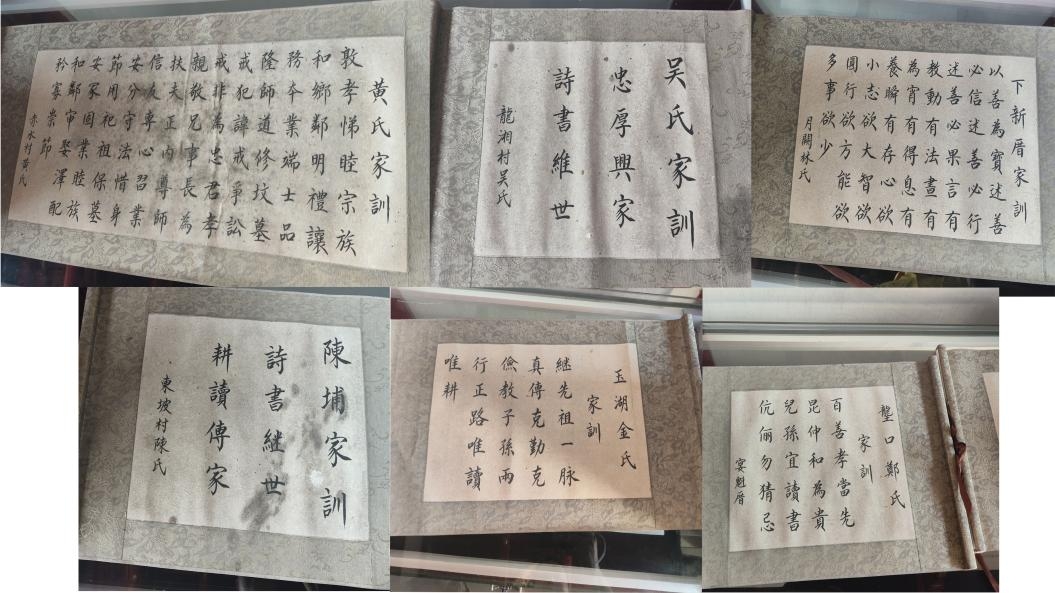 黄氏家訓
敦孝悌睦宗族
和鄉鄰明禮讓
務本業端士品
隆師道修坟墓
戒犯諱戒爭訟
戒非為忠君孝
親敬兄事長為
扶夫正内尊師
信友專心習業
安分守法惜身
節用祀祖保墓
安家固業睦族
和鄰审娶澤配
矜寡崇節
赤水村黄氏
吴氏家訓
忠厚興家
詩書維世
龍湘村吴氏
下新厝家訓
以善為寶述善
必信述善必行
述善必果言有
教動有法晝有
為宵有得息有
養瞬有存心欲
小志欲大智欲
圆行欲方能欲
多事欲少
月關林氏
陳埔家訓
詩書继世
耕讀傳家
東坡村陳氏
玉湖金氏
家訓
继先祖一脉
真傳克勤克
俭教子孫兩
行正路唯讀
唯耕
墾口鄭氏
家訓
百善孝當先
昆仲和為貴
兒孫宜讀書
伉俪勿猜忌
宴魁厝